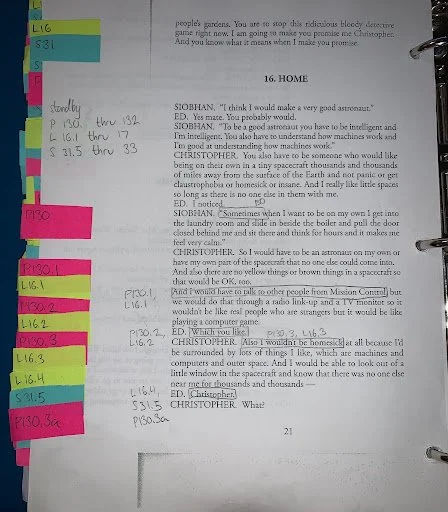 people's gardens. You are to stop this ridiculous bloody detective
game right now. I am going to make you promise me Christopher.
And you know what it means when I make you promise.
16. HOME
L16
S31
standby
P 130. thru 132
L 16.1 thru 17
S 31.5 thru 33
SIOBHAN. "I think I would make a very good astronaut."
ED. Yes mate. You probably would.
SIOBHAN. "To be a good astronaut you have to be intelligent and
I'm intelligent. You also have to understand how machines work and
I'm good at understanding how machines work."
CHRISTOPHER. You also have to be someone who would like
being on their own in a tiny spacecraft thousands and thousands
of miles away from the surface of the Earth and not panic or get
claustrophobia or homesick or insane. And I really like little spaces
so long as there is no one else in them with me.
ED. I noticed.
P130
SIOBHAN. "Sometimes when I want to be on my own I get into
the laundry room and slide in beside the boiler and pull the door
closed behind me and sit there and think for hours and it makes me
feel very calm."
CHRISTOPHER. So I would have to be an astronaut on my own or
have my own part of the spacecraft that no one else could come into.
And also there are no yellow things or brown things in a spacecraft so
that would be OK, too.
P130.1
L16.1
And I would have to talk to other people from Mission Control but
we would do that through a radio link-up and a TV monitor so it
wouldn't be like real people who are strangers but it would be like
playing a computer game.
P130.2,
L16.2
ED. Which you like.
P130.3, L16.3
CHRISTOPHER. Also I wouldn't be homesick at all because I'd
be surrounded by lots of things I like, which are machines and
computers and outer space. And I would be able to look out of a
little window in the spacecraft and know that there was no one else
near me for thousands and thousands —
L16.4,
S31.5
P130.3a
ED. Christopher.
CHRISTOPHER. What?
P130.1
L16.1
P130.2
L16.2
P130.3
L16.3
L16.4
S31.5
P130.3a
21